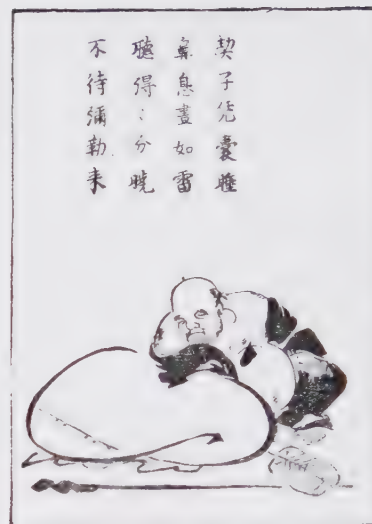 契子凭囊睡
鼻息晝如雷
聽得〻分曉
不待彌勒来